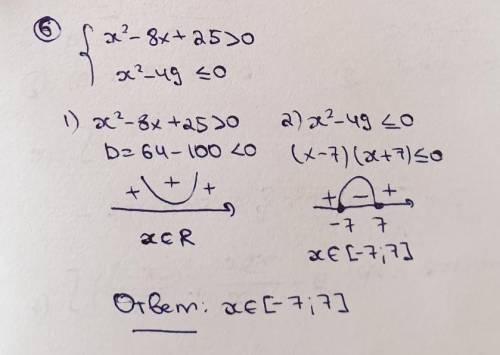 6
x² - 8x + 25 > 0
x² - 49 ≤ 0
1) x² - 8x + 25 > 0
D = 64 - 100 < 0
+ + +
x ∈ R
2) x² - 49 ≤ 0
(x - 7)(x + 7) ≤ 0
+ - +
-7 7
x ∈ [-7; 7]
Ответ: x ∈ [-7; 7]